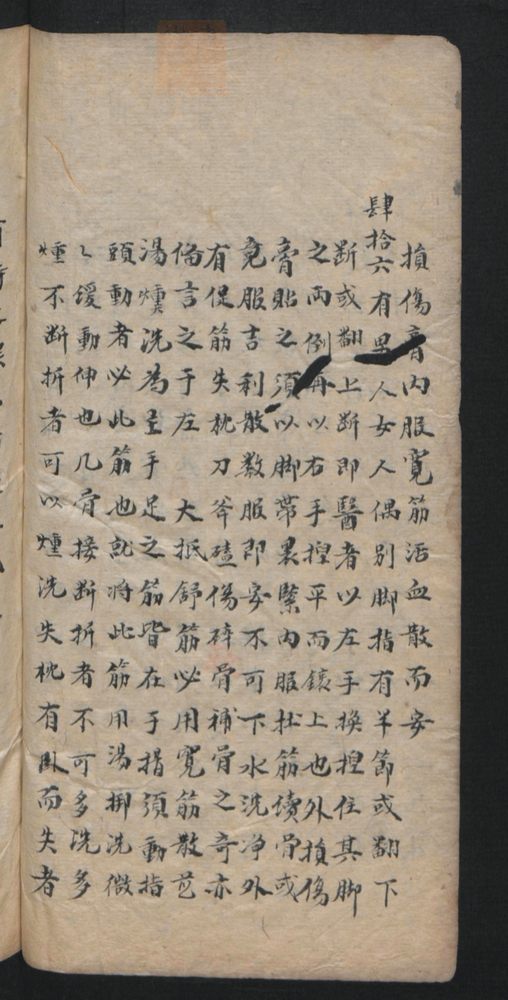 損傷膏内服寬筋活血散而安
肆拾六有男人女人偶別脚指有半節或翻下
断或翻上断即醫者以左手換揑住其脚
之両倒再以右手揑平而鑲上也外損傷
膏貼之須以脚帶裹緊内服壮筋續骨或
竟服吉利散数服即安不可下水洗净外
有促筋失枕刀斧磕傷碎骨補骨之奇亦
偹言之于左 大抵舒筋必用寬筋散芑
湯燻洗為主手足之筋皆在于指須動指
頭動者必此筋也就将此筋用湯揤洗微
〻缓動伸也几骨接断折者不可多洗多
燻不断折者可以燻洗失枕有臥而失者